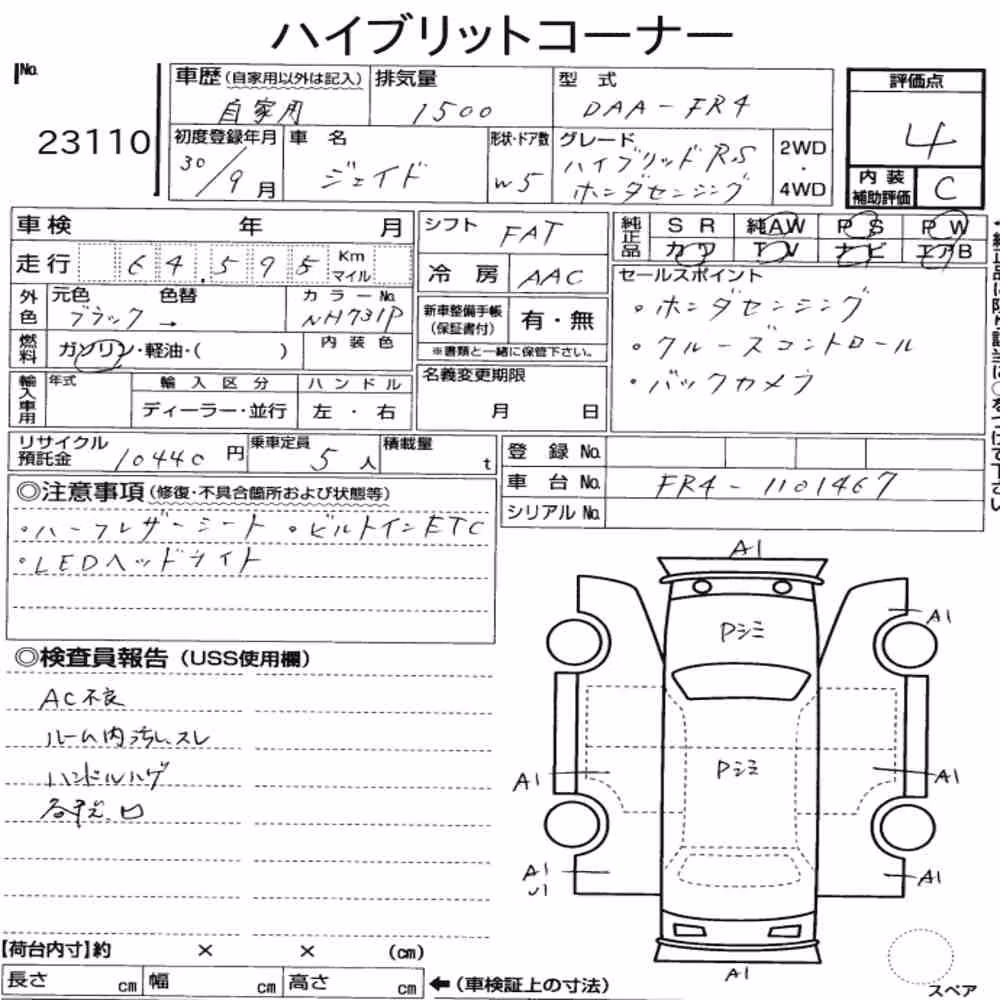 ハイブリットコーナー
No.
23110
車歴(自家用以外は記入)
自家用
排気量
1500
型 式
DAA-FR4
評価点
4
内装
補助評価
C
初度登録年月
30/9月
車 名
ジェイド
形状・ドア数
W5
グレード
ハイブリッドRS
ホンダセンシング
2WD
・
4WD
車検 年 月
走行 64,595 Km
マイル
外色
元色 色替
ブラック →
カラーNo.
NH731P
燃料
ガソリン・軽油・( )
内装色
輸入車用
年式
輸入区分
ディーラー・並行
ハンドル
左・右
シフト FAT
冷房 AAC
新車整備手帳
(保証書付)
有・無
※書類と一緒に保管下さい。
名義変更期限
月 日
純正品
SR 純AW PS PW
カワ TV ナビ エアB
セールスポイント
・ホンダセンシング
・クルーズコントロール
・バックカメラ
リサイクル
預託金
10440円
乗車定員
5人
積載量
t
登録No.
車台No. FR4-1101467
シリアルNo.
◎注意事項(修復・不具合箇所および状態等)
・ハーフレザーシート ・ビルトインETC
・LEDヘッドライト
◎検査員報告(USS使用欄)
AC不良
ルーム内汚れ、スレ
ハンドルハゲ
A1
Pシミ
A1
Pシミ
A1
A1
A1
U1
A1
A1
スペア
【荷台内寸】約 × × (cm)
長さ cm 幅 cm 高さ cm
←(車検証上の寸法)